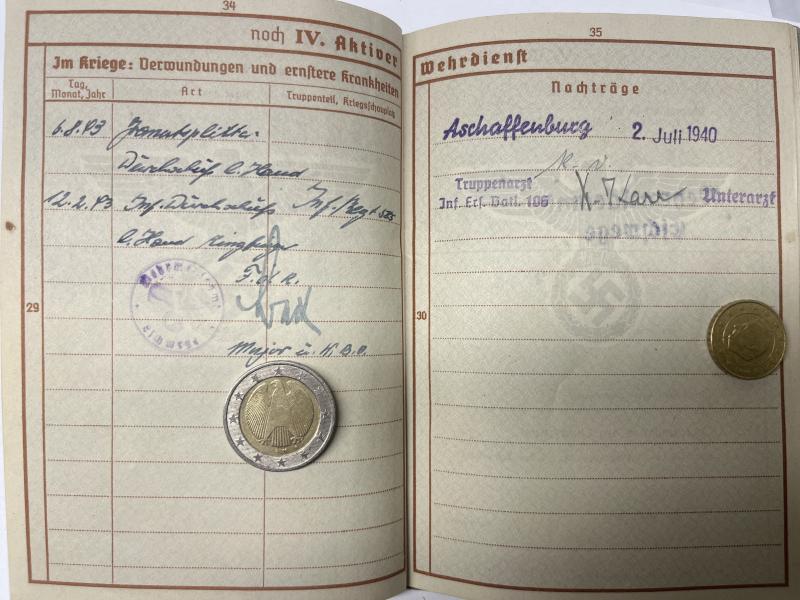 34
noch IV. Aktiver
Im Kriege: Verwundungen und ernstere Krankheiten
Tag, Monat, Jahr
Art
Truppenteil, Kriegsschauplatz
6.8.43 Granatsplitter
Durchschuß l. Hand
12.2.43 Inf. Durchschuß Inf. Regt
l. Hand Ringfinger
F.d.R.
Major u.
29
35
Wehrdienst
Nachträge
Aschaffenburg 2. Juli 1940
Truppenarzt
Inf. Ers. Batl. 106
Unterarzt
30